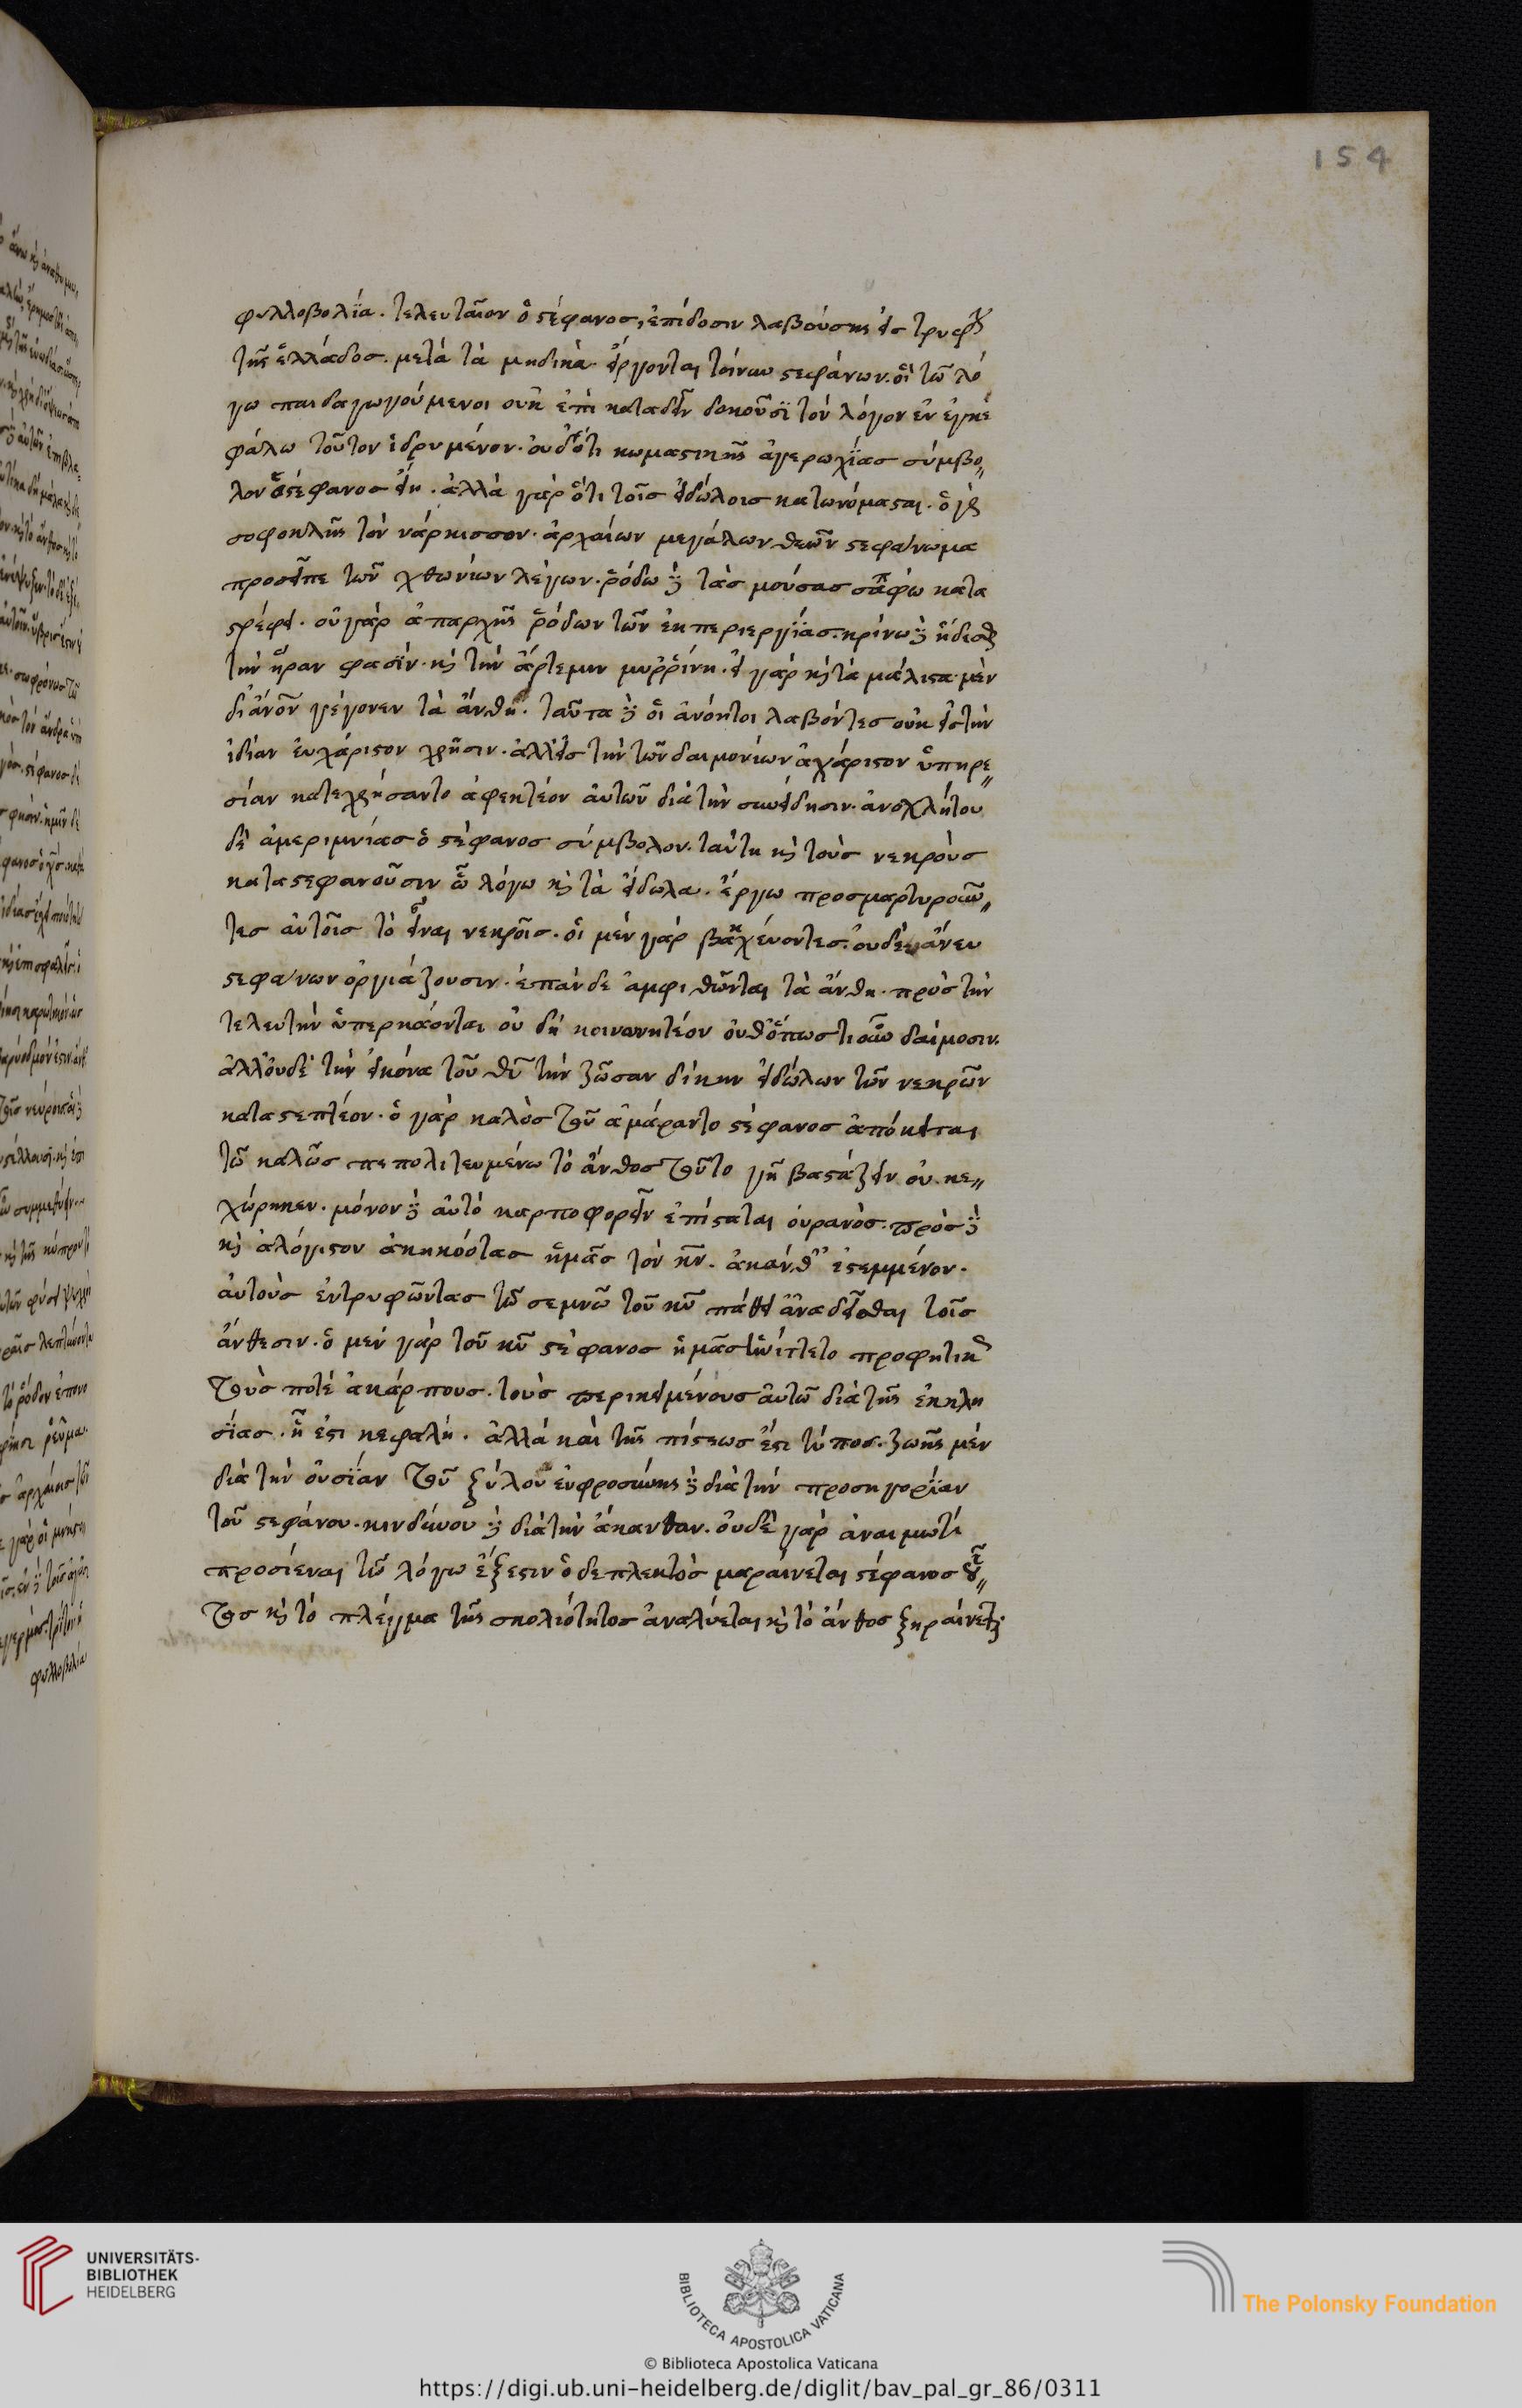 154
φυλλοβολΐα. τελευταῖον ὁ στέφανος, ἐπίδοσιν λαβούσης εἰς τρυφὴν
τῆς ἑλλάδος. μετὰ τὰ μηδικὰ. εἴργονται τοίνυν στεφάνων. οἱ τῶ λό
γω παιδαγωγούμενοι οὐκ ἐπὶ καταδεῖν δοκοῦσϊ τὸν λόγον ἐν ἐγκε
φάλω τοῦτον ἱδρυμένον. οὐδ' ὅτι κωμαστικῆς ἀγερωχΐας σύμβο〃
λον ὁ στέφανος εἴη. ἀλλὰ γὰρ ὅτι τοῖς εἰδώλοις κατωνόμασται. ὁ γὰρ
σοφοκλῆς τὸν νάρκισσον. ἀρχαίων μεγάλων θεῶν στεφάνωμα
προσεῖπε τῶν χθονίων λέγων. ῥόδω δὲ τὰς μούσας σαπφὼ κατα
στρέφει. οὐ γὰρ ἀπαρχῆς ῥόδων τῶν ἐκ περιεργΐας. κρίνω δὲ ἥδεσθαι
τὴν ἥραν φασῒν. καὶ τὴν ἄρτεμιν μυῤῥίνη. εἰ γὰρ καὶ τὰ μάλιστα μὲν
δι' ἄνον γέγονεν τὰ ἄνθη. ταῦτα δὲ οἱ ἀνόητοι λαβόντες οὐκ εἰς τὴν
ἰδίαν εὐχάριστον χρῆσιν. ἀλλ' εἰς τὴν τῶν δαιμονίων ἀχάριστον ὑπηρε〃
σίαν κατεχρήσαντο ἀφεκτέον αὐτῶν διὰ τὴν συνείδησιν. ἀνοχλήτου
δὲ ἀμεριμνίας ὁ στέφανος σύμβολον. ταύτη καὶ τοὺς νεκροὺς
καταστεφανοῦσιν ὧ λόγω καὶ τὰ εἴδωλα. ἔργω προσμαρτυροῦν〃
τες αὐτοῖς τὸ εἶναι νεκροῖς. οἱ μὲν γὰρ βακχεύοντες. οὐδὲ ἄνευ
στεφάνων ὀργιάζουσιν. ἐπὰν δὲ ἀμφιθῶνται τὰ ἄνθη. πρὸς τὴν
τελευτὴν ὑπερκάονται οὐ δὴ κοινωνητέον οὐδ' ὅπωστιοῦν δαίμοσιν.
ἀλλ' οὐδὲ τὴν εἰκόνα τοῦ θῦ τὴν ζῶσαν δίκην εἰδώλων τῶν νεκρῶν
καταστεπτέον. ὁ γὰρ καλὸς τοῦ ἀμάραντο στέφανος ἀπόκειται
τῶ καλῶς πεπολιτευμένω τὸ ἄνθος τοῦτο γῆ βαστάζειν οὐ κε〃
χώρηκεν. μόνον δὲ αὐτὸ καρποφορεῖν ἐπίσταται οὐρανὸς. πρὸς δὲ
καὶ ἀλόγιστον ἀκηκόοτας ἡμᾶς τὸν κν. ἀκάνθαις ἐστεμμένον.
αὐτοὺς ἐντρυφῶντας τῶ σεμνῶ τοῦ κῦ πάθει ἀναδεῖσθαι τοῖς
ἄνθεσιν. ὁ μὲν γὰρ τοῦ κῦ στέφανος ἡμᾶς ἠνίττετο προφητικῶς
τοὺς ποτὲ ἀκάρπους. τοὺς περικειμένους αὐτῶ διὰ τῆς ἐκκλη
σΐας. ἧ ἐστι κεφαλὴ. ἀλλὰ καὶ τῆς πίστεως ἐστι τύπος. ζωῆς μὲν
διὰ τὴν οὐσΐαν τοῦ ξύλου εὐφροσύνης δὲ διὰ τὴν προσηγορΐαν
τοῦ στεφάνου. κινδύνου δὲ διὰ τὴν ἄκανθαν. οὐδὲ γὰρ ἀναιμωτὶ
προσϊέναι τῶ λόγω ἔξεστιν ὁ δε πλεκτὸς μαραίνεται στέφανος οὗ〃
τος καὶ τὸ πλέγμα τῆς σκολιότητος ἀναλύεται καὶ τὸ ἄνθος ξηραίνεται.
UNIVERSITÄTS-
BIBLIOTHEK
HEIDELBERG
BIBLIOTECA APOSTOLICA VATICANA
The Polonsky Foundation
© Biblioteca Apostolica Vaticana
https://digi.ub.uni-heidelberg.de/diglit/bav_pal_gr_86/0311